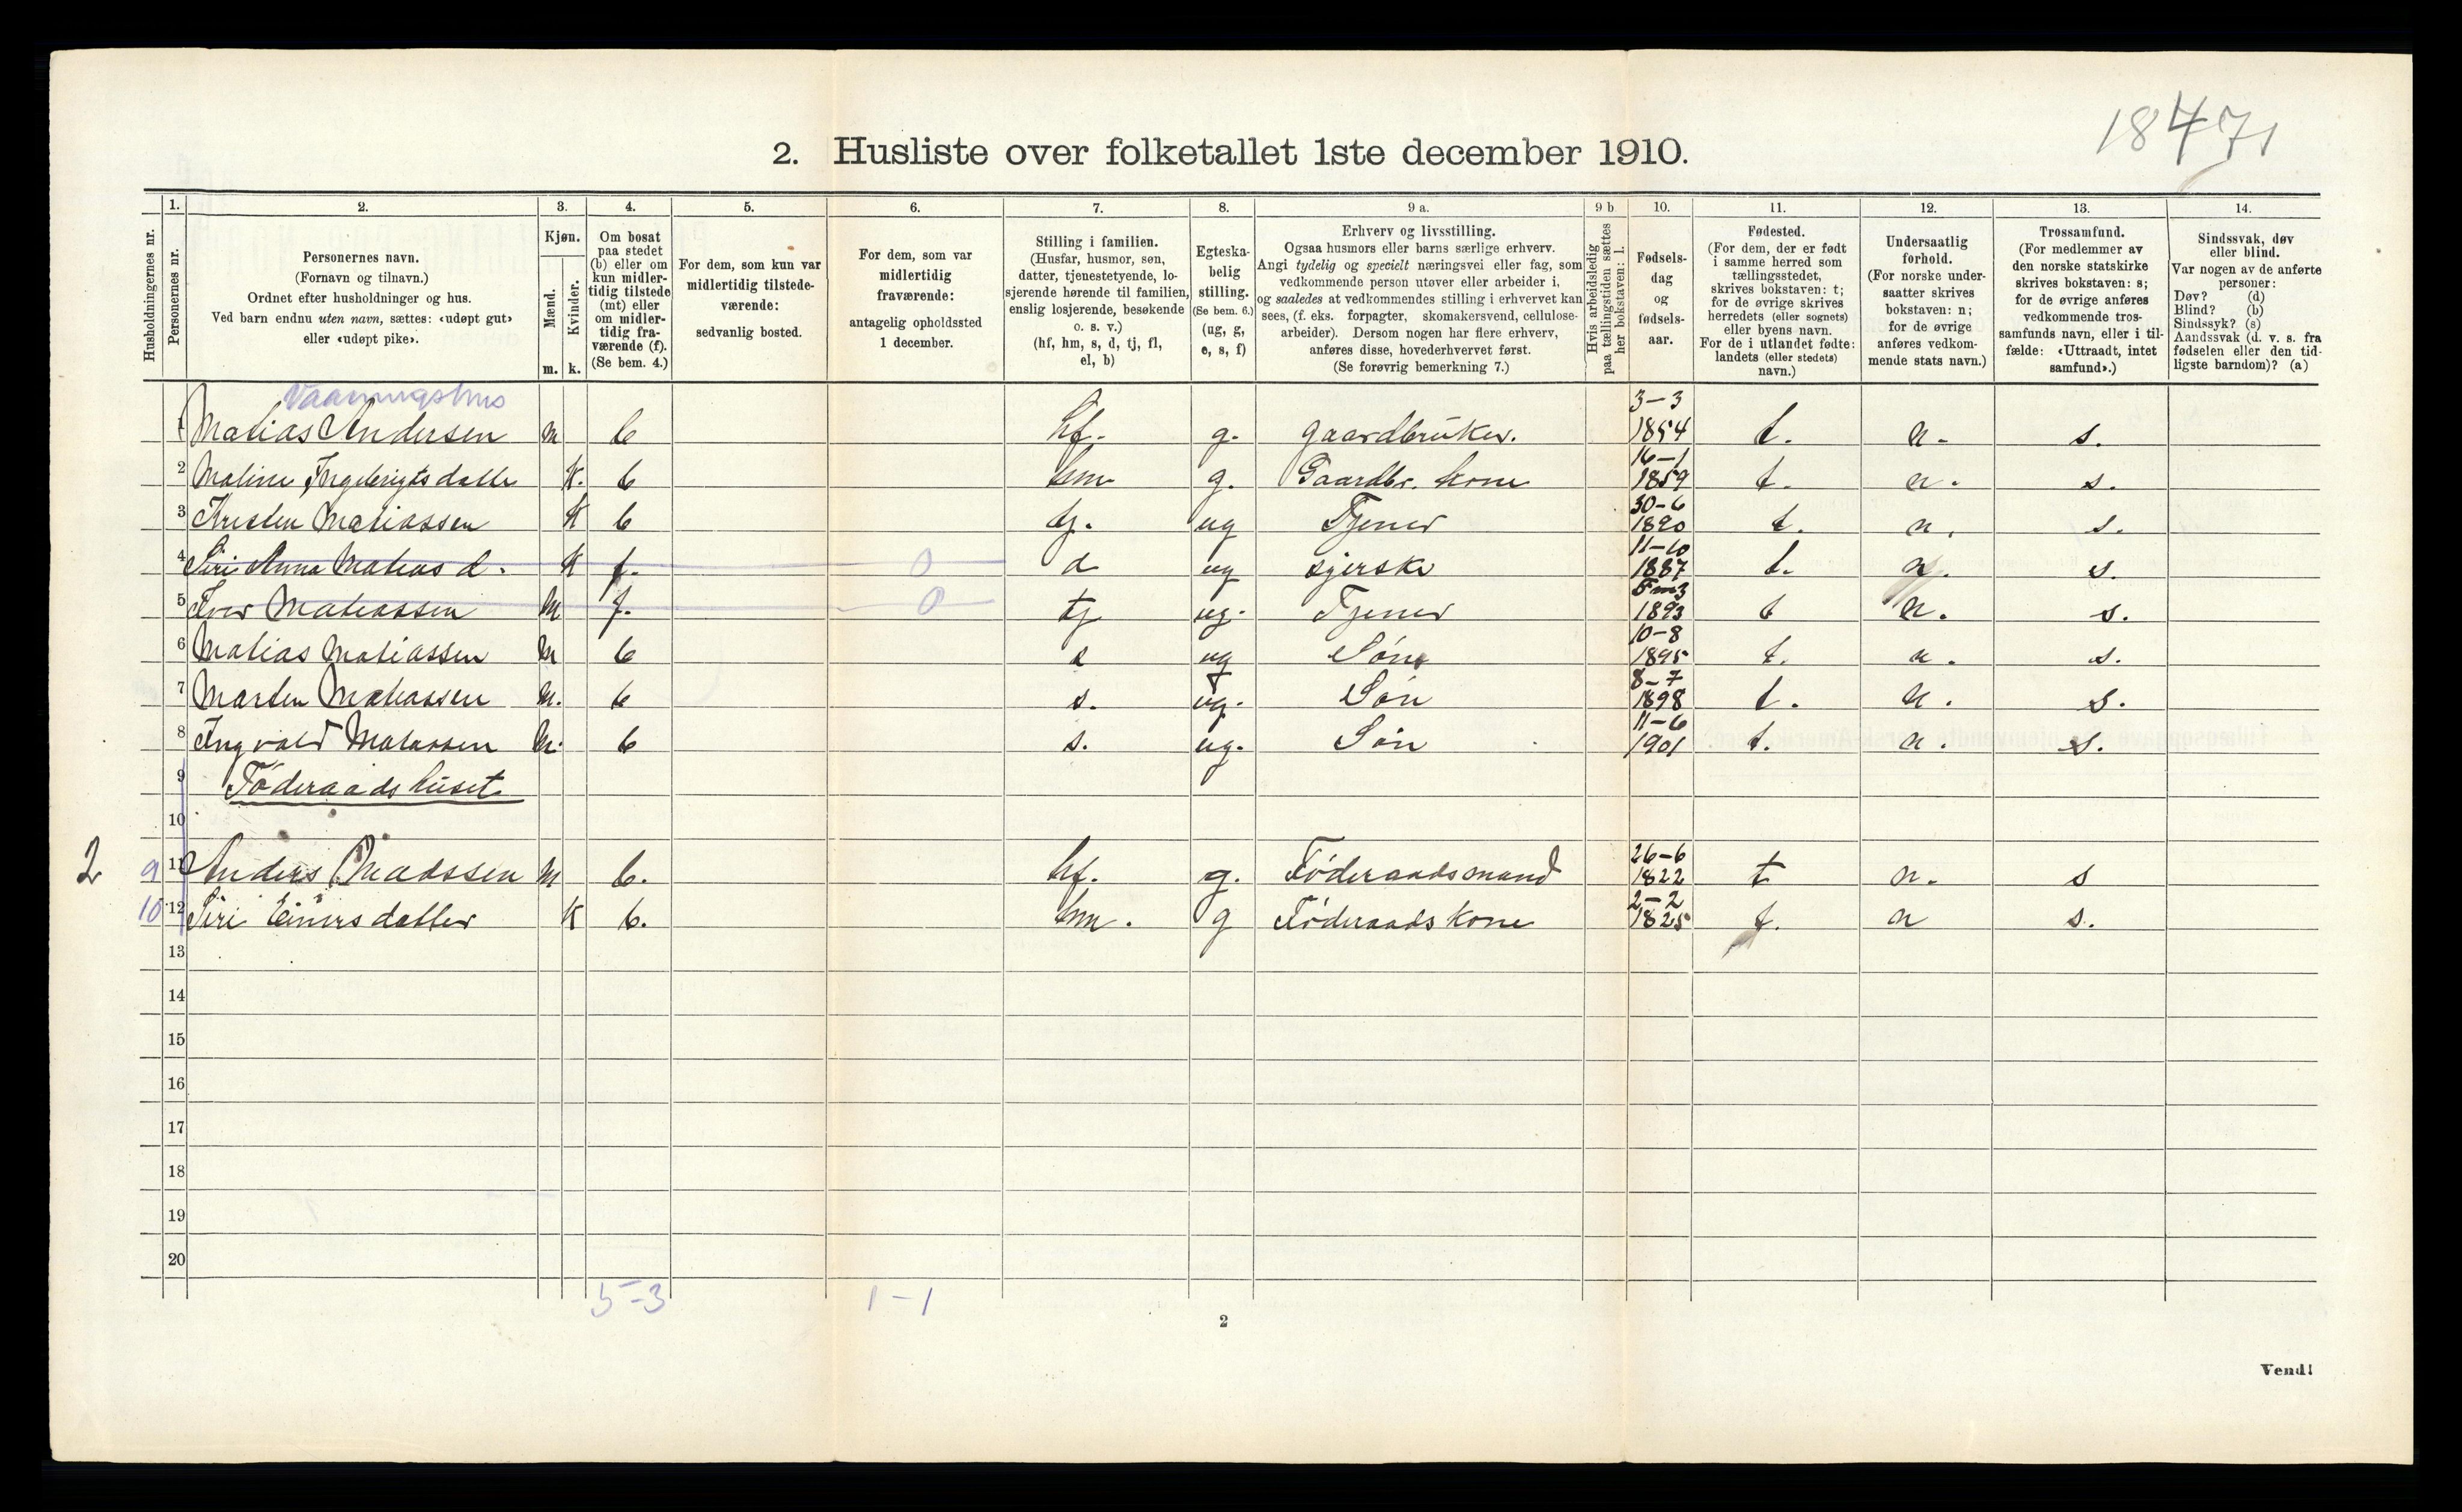 18471
2. Husliste over folketallet 1ste december 1910.
1. 2. 3. 4. 5. 6. 7. 8. 9 a. 9 b 10. 11. 12. 13. 14.
Husholdningernes nr.
Personernes nr.
Personernes navn.
(Fornavn og tilnavn.)
Ordnet efter husholdninger og hus.
Ved barn endnu uten navn, sættes: «udøpt gut»
eller «udøpt pike».
Kjøn.
Mænd.
Kvinder.
m. k.
Om bosat
paa stedet
(b) eller om
kun midler-
tidig tilstede
(mt) eller
om midler-
tidig fra-
værende (f).
(Se bem. 4.)
For dem, som kun var
midlertidig tilstede-
værende:
sedvanlig bosted.
For dem, som var
midlertidig
fraværende:
antagelig opholdssted
1 december.
Stilling i familien.
(Husfar, husmor, søn,
datter, tjenestetyende, lo-
sjerende hørende til familien,
enslig losjerende, besøkende
o. s. v.)
(hf, hm, s, d, tj, fl,
el, b)
Egteska-
belig
stilling.
(Se bem. 6.)
(ug, g,
e, s, f)
Erhverv og livsstilling.
Ogsaa husmors eller barns særlige erhverv.
Angi tydelig og specielt næringsvei eller fag, som
vedkommende person utøver eller arbeider i,
og saaledes at vedkommendes stilling i erhvervet kan
sees, (f. eks. forpagter, skomakersvend, cellulose-
arbeider). Dersom nogen har flere erhverv,
anføres disse, hovederhvervet først.
(Se forøvrig bemerkning 7.)
Hvis arbeidsledig
paa tællingstiden sættes
her bokstaven: l.
Fødsels-
dag
og
fødsels-
aar.
Fødested.
(For dem, der er født
i samme herred som
tællingsstedet,
skrives bokstaven: t;
for de øvrige skrives
herredets (eller sognets)
eller byens navn.
For de i utlandet fødte:
landets (eller stedets)
navn.)
Undersaatlig
forhold.
(For norske under-
saatter skrives
bokstaven: n;
for de øvrige
anføres vedkom-
mende stats navn.)
Trossamfund.
(For medlemmer av
den norske statskirke
skrives bokstaven: s;
for de øvrige anføres
vedkommende tros-
samfunds navn, eller i til-
fælde: «Uttraadt, intet
samfund».)
Sindssvak, døv
eller blind.
Var nogen av de anførte
personer:
Døv? (d)
Blind? (b)
Sindssyk? (s)
Aandssvak (d. v. s. fra
fødselen eller den tid-
ligste barndom)? (a)
Vaaningshus
1 Matias Andersen m b hf. g. gaardbruker. 3-3 1854 t. n. s.
2 Maline Ingebrigtsdatter K. b hm g. Gaardbr. kone 16-1 1859 t. n. s.
3 Kristen Matiassen K b tj. ug Tjener 30-6 1890 t. n. s.
4 Siri Anna Matias d. K f. 0 d ug syerske 11-10 1887 t. n. s.
5 Iver Matiassen M f. 0 tj ug. Tjener 1893 t n. s.
6 Matias Matiassen M b s ug Søn 10-8 1895 t. n. s.
7 Marten Matiassen M. b s. ug. Søn 8-7 1898 t. n. s.
8 Ingvald Matiassen M. b s. ug. Søn 11-6 1901 t. n. s.
9 Føderaadshuset
10
2 9 11 Anders Madssen M b. hf. g. Føderaadsmand 26-6 1822 t n. s
10 12 Siri Einersdatter K b. hm. g Føderaadskone 2-2 1825 t. n s.
13
14
15
16
17
18
19
20
5-3 1-1
2
Vend!